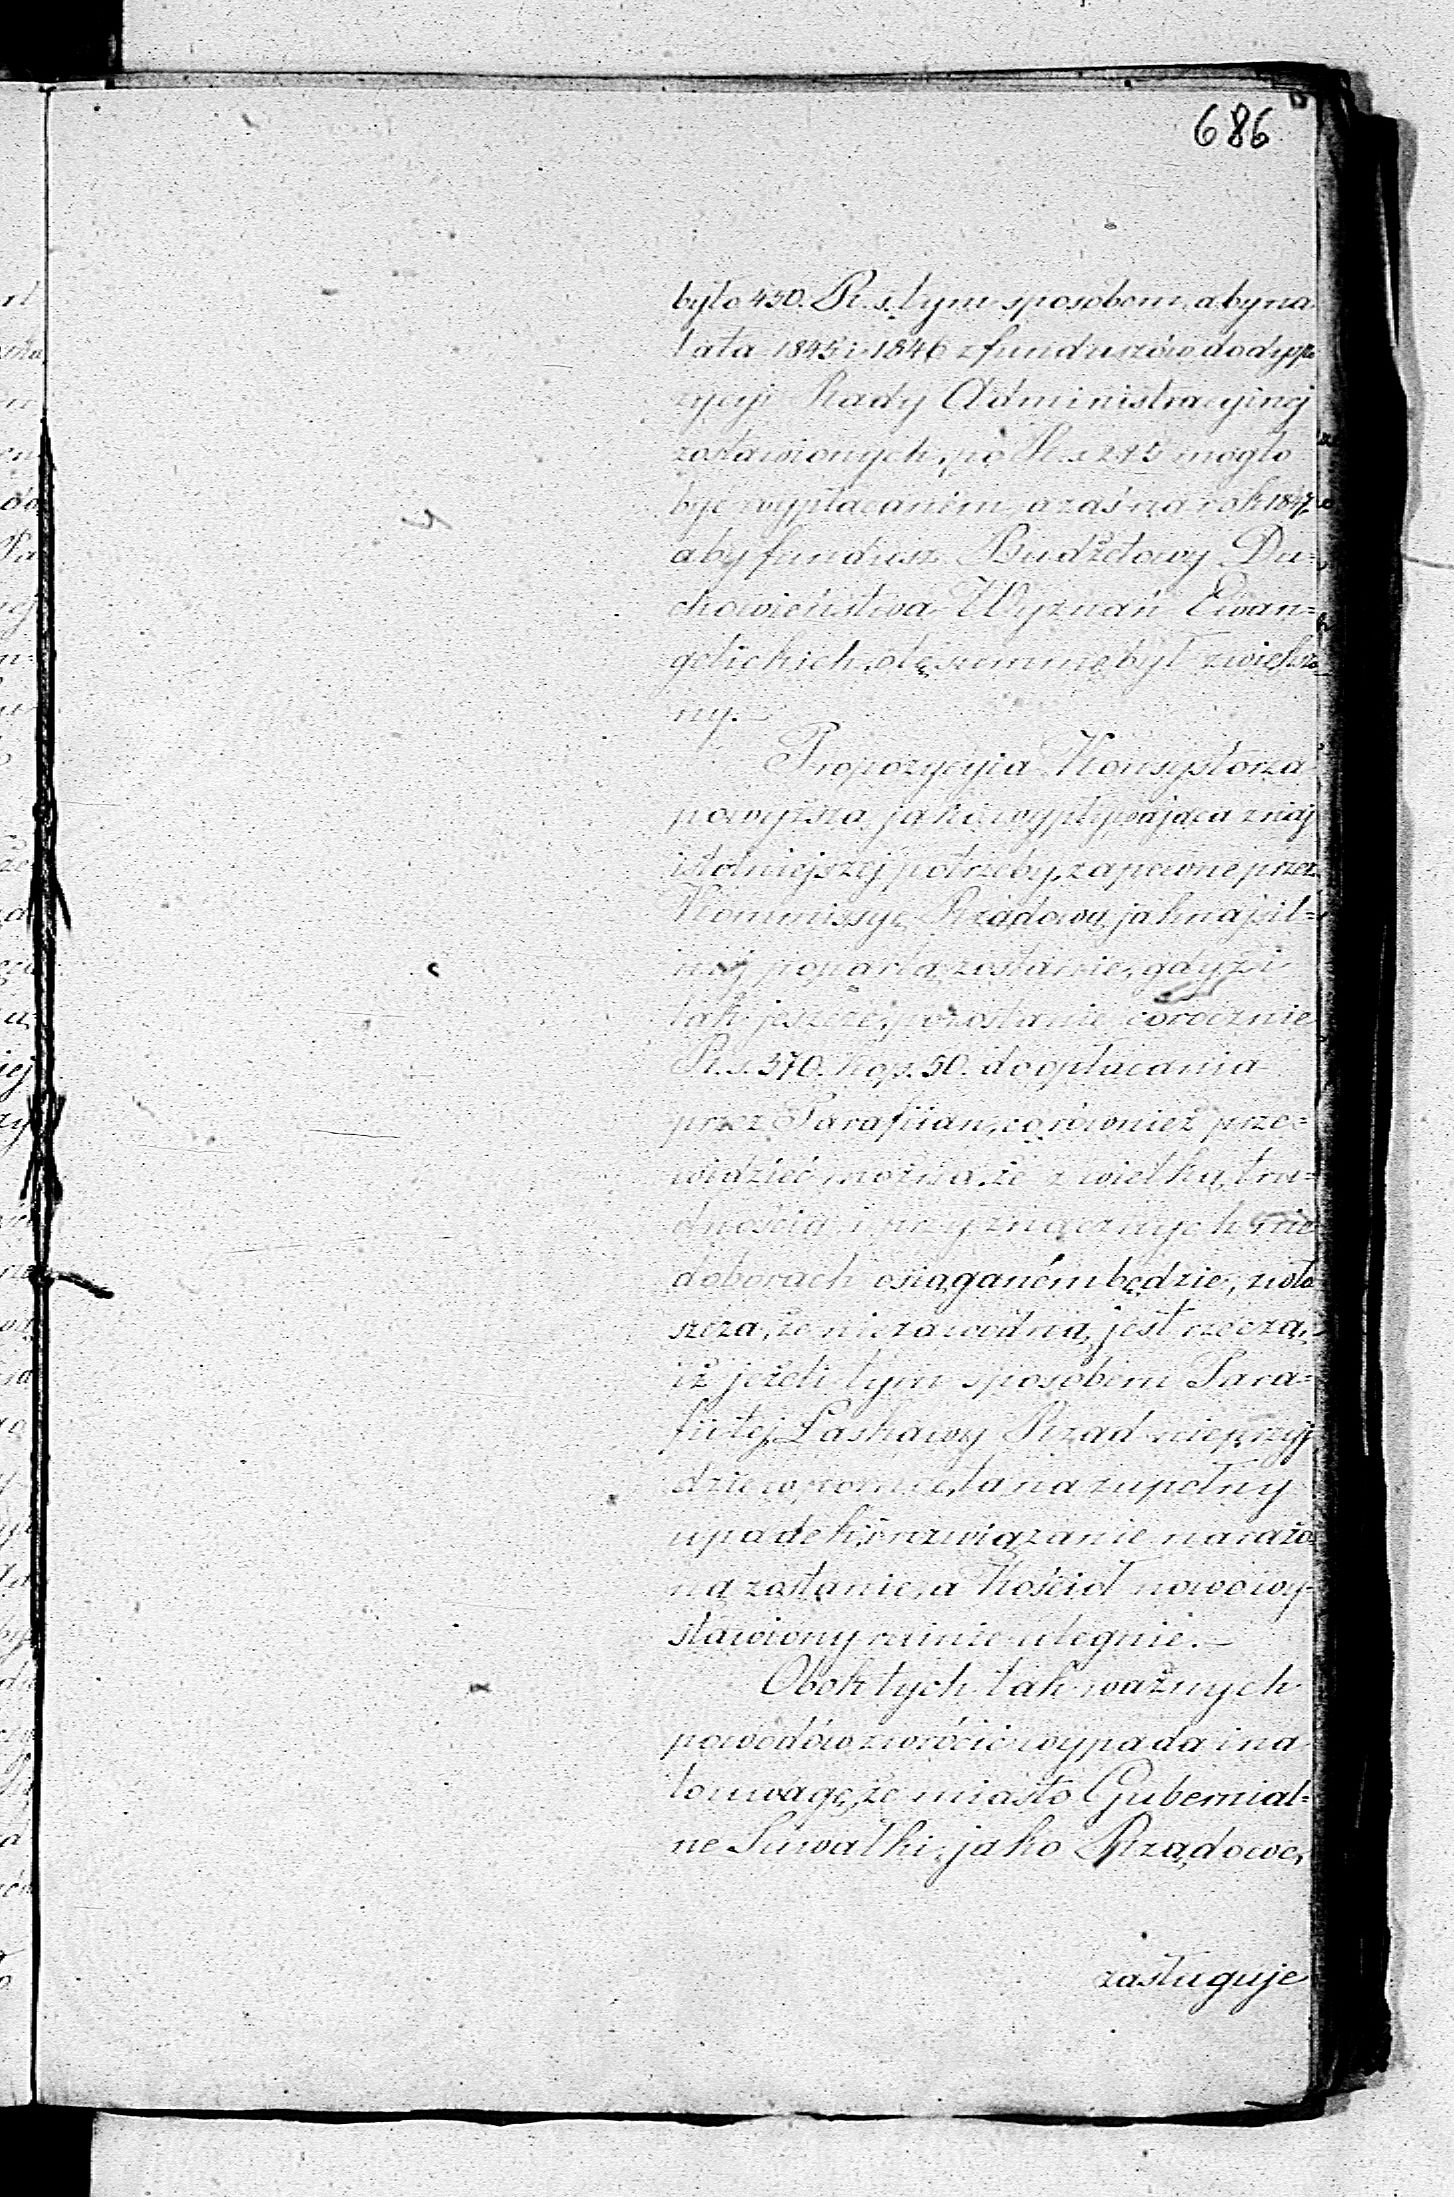 686
było 450. R. s. tym sposobem, aby na
lata 1845 i 1846 z funduszów do dyspo
zycyi Rady Administracyjnej
zostawionych, po R. s. 225 mogło
być wypłacaném, a zaś na rok 1847
aby fundusz Budżetowy Du=
chowieństwa Wyznań Ewan=
gelickich, o tę summę był zwiększo
ny.
Propozycyia Konsystorza
powyższa, jako wypływająca z naj
istotniejszej potrzeby, zapewne przez
Kommissyę Rządową jaknajsil=
niej popartą zostanie, gdyż i
tak jeszcze, pozostanie corocznie
R. s. 370. kop. 50. do opłacania
przez Parafiian, co również prze=
widzieć można, że z wielką tru=
dnością i przy znacznych nie
doborach osiąganém będzie, zwła
szcza, że niezawodną jest rzeczą,
iż jeżeli tym sposobem Para=
fii tej, Łaskawy Rząd nieprzyj
dzie w pomoc, ta na zupełny
upadek i rozwiązanie narażo=
ną zostanie, a Kościół nowowy=
stawiony ruinie ulegnie.
Obok tych tak ważnych
powodów zwrócić wypada i na
to uwagę, że miasto Gubernial=
ne Suwałki, jako Rządowe,
zasługuje